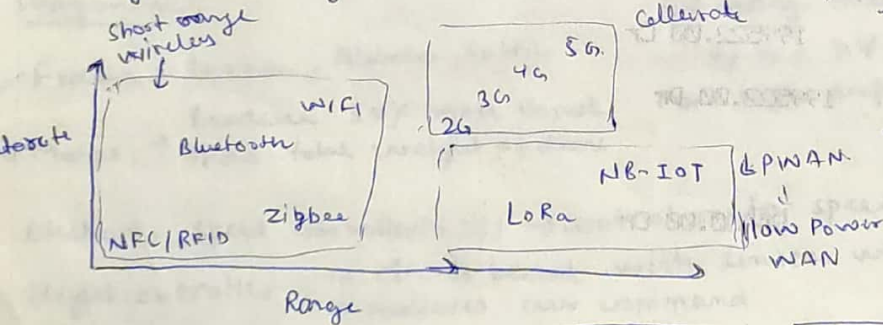 Short range
wireless
Cellurate
5G.
4G
3G
2G
WiFi
Bluetooth
Zigbee
NFC/RFID
NB-IOT
LoRa
LPWAN
↓
low Power
WAN
Range